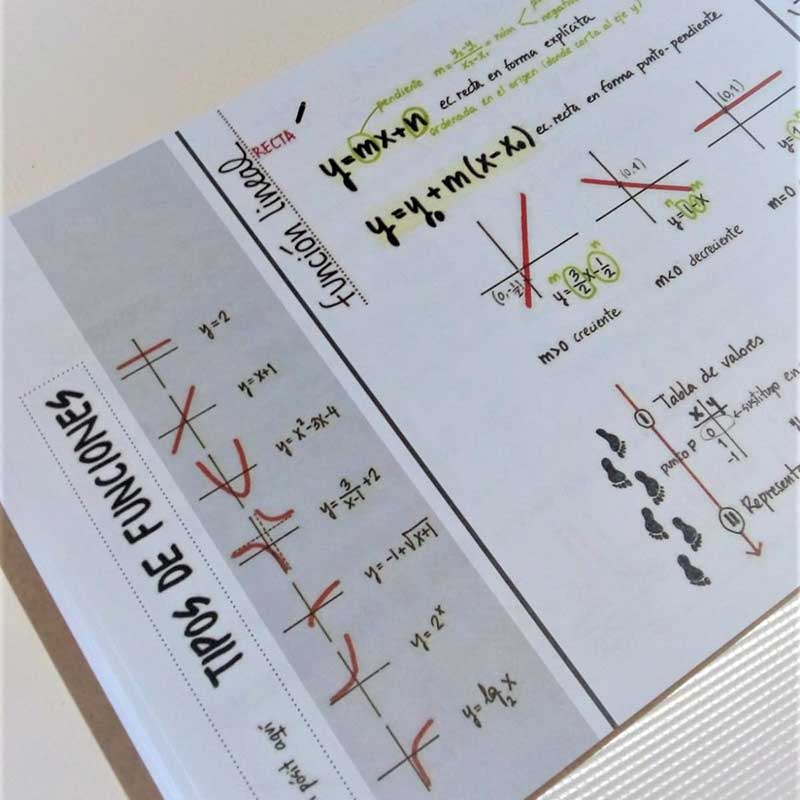 TIPOS DE FUNCIONES
pósit aquí
y=2
y=x+1
y=x²-3x-4
y=3/(x-1)+2
y=-1+√(x+1)
y=2ˣ
y=log₂x
función lineal
RECTA
pendiente m=(y₂-y₁)/(x₂-x₁)=núm
y=mx+n ec. recta en forma explícita
ordenada en el origen (donde corta al eje y)
y=y₀+m(x-x₀) ec. recta en forma punto-pendiente
(0,-1/2)
m n
y=3/2x-1/2
m>0 creciente
(0,1)
n m
y=1-x
m<0 decreciente
(0,1)
y=1
m=0
I Tabla de valores
x y
punto P 0 ← sustituyo en
1
-1
II Represent